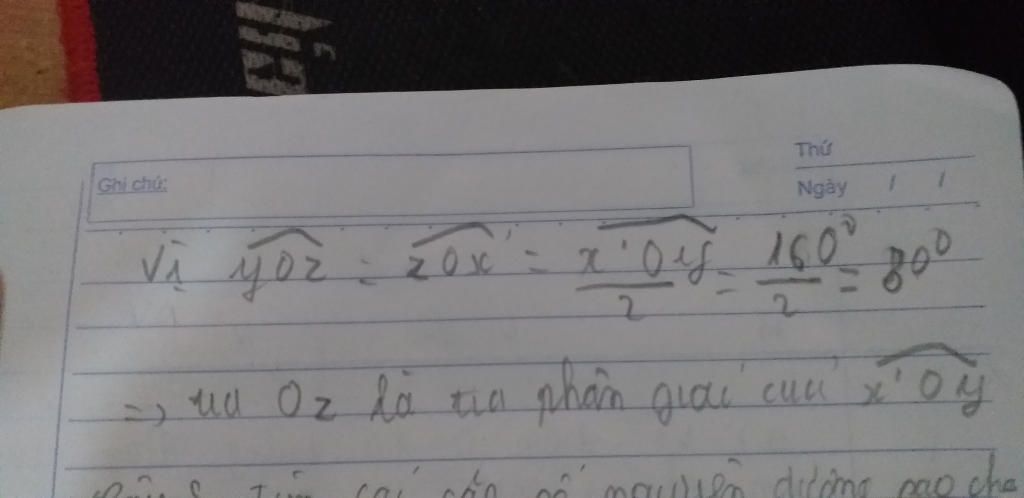 Ghi chú:
Thứ
Ngày / /
Vì yOz = zOx' = x'Oy/2 = 160⁰/2 = 80⁰
=> tia Oz là tia phân giác của x'Oy
số nguyên dương sao cho